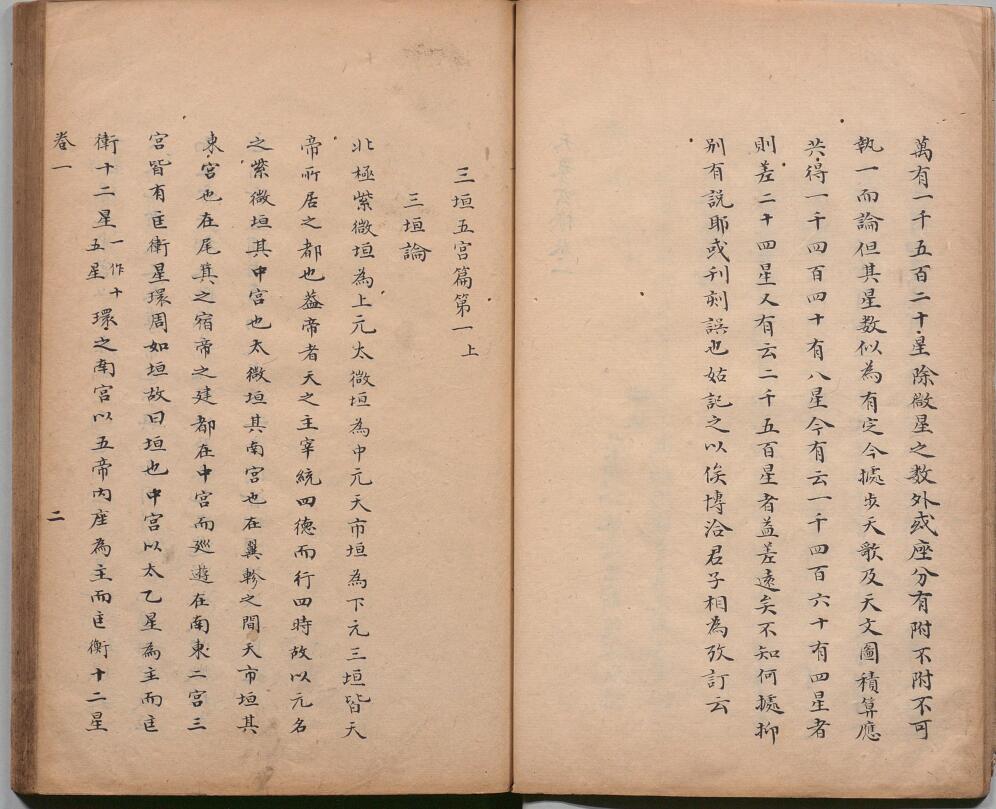 萬有一千五百二十星除微星之数外或座分有附不附不可
執一而論但其星数似為有定今據步天歌及天文圖積算應
共得一千四百四十有八星今有云一千四百六十有四星者
則差二十四星又有云二千五百星者益差遠矣不知何據抑
別有説耶或刋刻誤也姑記之以俟博洽君子相為攷訂云
三垣五宮篇第一上
三垣論
北極紫微垣為上元太微垣為中元天市垣為下元三垣皆天
帝所居之都也葢帝者天之主宰統四德而行四時故以元名
之紫微垣其中宮也太微垣其南宮也在翼軫之間天市垣其
東宮也在尾箕之宿帝之建都在中宮而廵遊在南東二宮三
宮皆有匡衛星環周如垣故曰垣也中宮以太乙星為主而匡
衛十二星一作十五星環之南宮以五帝內座為主而匡衛十二星
卷一
二